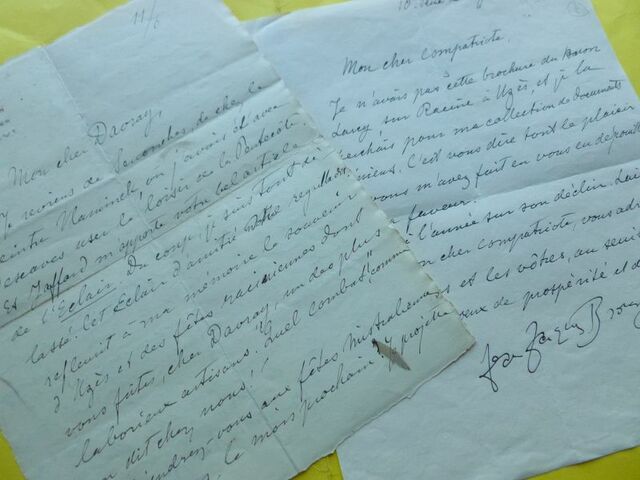 11/5
Mon cher Davray,
Je reviens de Senonches, de chez le
peintre Vlaminck où j'avais été avec
Descaves user le loisir de la Pentecôte
Et Jaffard m'apporte votre bel article
de l'Eclair. Du coup, je suis tout dé
lassé. Cet Eclair d'amitié
refleurit à ma mémoire le souvenir
d'Uzès et des fêtes raciniennes dont
vous fûtes, cher Davray, un des plus
laborieux artisans. "Quel combat", comme
on dit chez nous!
viendrez-vous aux fêtes mistraliennes
le mois prochain? J'y projette
10, rue
Mon cher Compatriote,
Je n'avais pas cette brochure du Baron
Larcy sur Racine à Uzès, et je la
cherchais pour ma collection de documents
raciniens. C'est vous dire tout le plaisir
vous m'avez fait en vous en dépouil
faveur.
l'année sur son déclin. Lai
mon cher compatriote, vous adre
et les vôtres, au seuil
vœux de prospérité et d
Jean Jacques Brou